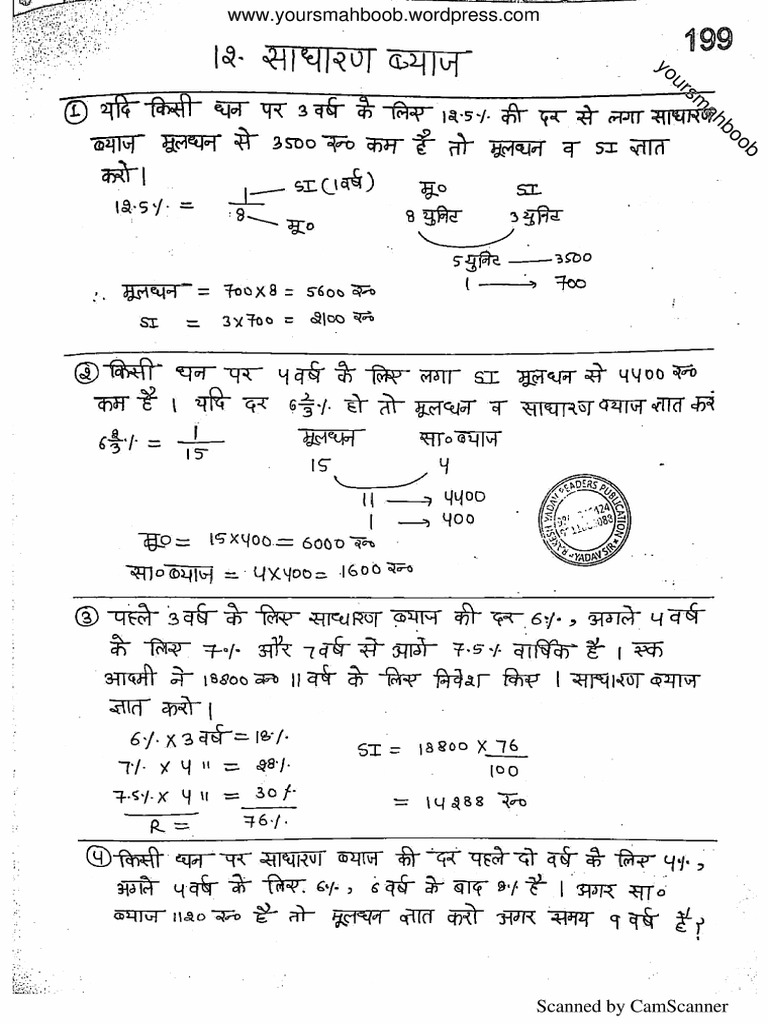 www.yoursmahboob.wordpress.com
199
yoursmahboob
12. साधारण ब्याज
① यदि किसी धन पर 3 वर्ष के लिए 12.5% की दर से लगा साधारण
ब्याज मूलधन से 3500 रू० कम है तो मूलधन व SI ज्ञात
करो।
12.5% = 1/8 SI (1 वर्ष) मू०
मू० SI
8 युनिट 3 युनिट
5 युनिट — 3500
1 → 700
∴ मूलधन = 700×8 = 5600 रू०
SI = 3×700 = 2100 रू०
② किसी धन पर 4 वर्ष के लिए लगा SI मूलधन से 4400 रू०
कम है। यदि दर 6 2/3% हो तो मूलधन व साधारण ब्याज ज्ञात करें
6 2/3% = 1/15
मूलधन सा० ब्याज
15 4
11 → 4400
1 → 400
मू० = 15×400 = 6000 रू०
सा० ब्याज = 4×400 = 1600 रू०
RAKESH YADAV READERS PUBLICATION
YADAV SIR
③ पहले 3 वर्ष के लिए साधारण ब्याज की दर 6%, अगले 4 वर्ष
के लिए 7% और 7 वर्ष से आगे 7.5% वार्षिक है। एक
आदमी ने 18800 रू० 11 वर्ष के लिए निवेश किए। साधारण ब्याज
ज्ञात करो।
6% × 3 वर्ष = 18%
7% × 4 " = 28%
7.5% × 4 " = 30%
R = 76%
SI = 18800 × 76/100
= 14288 रू०
④ किसी धन पर साधारण ब्याज की दर पहले दो वर्ष के लिए 4%,
अगले 4 वर्ष के लिए 6%, 6 वर्ष के बाद 8% है। अगर सा०
ब्याज 1120 रू० है तो मूलधन ज्ञात करो अगर समय 9 वर्ष है?
Scanned by CamScanner